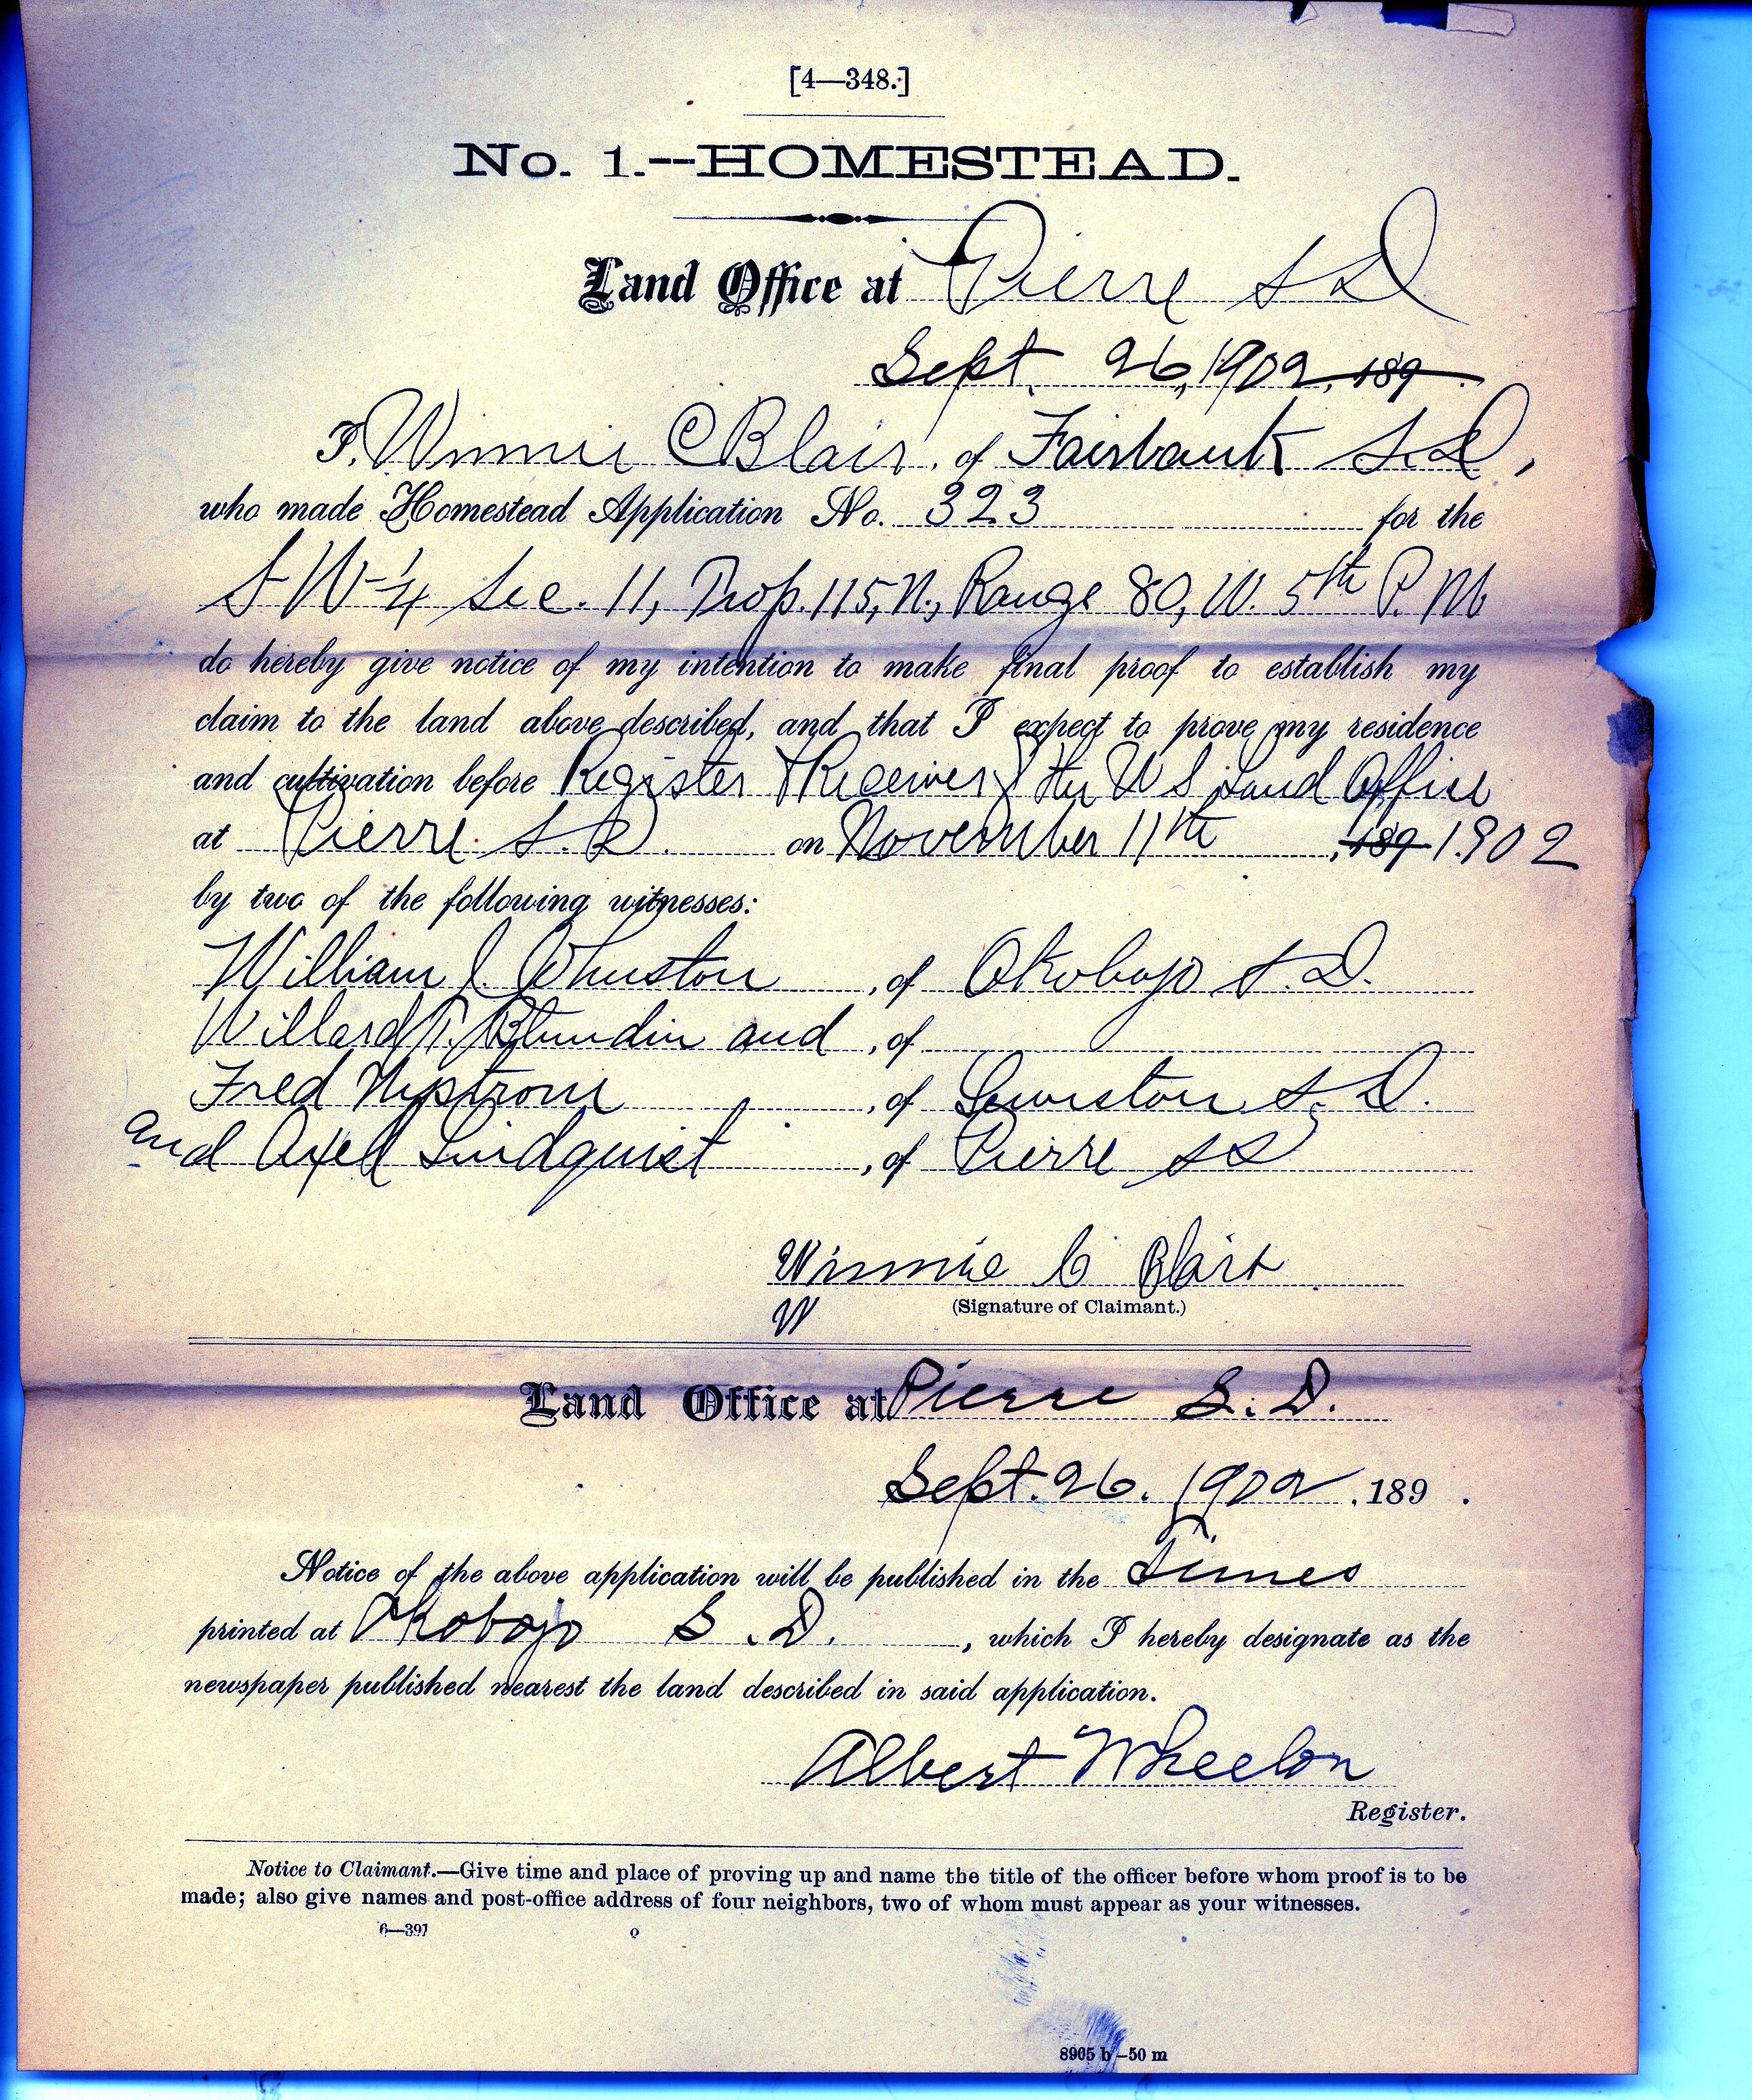 [4—348.]
No. 1.--HOMESTEAD.
Land Office at Pierre S D
Sept. 26, 1902, 189 .
I, Winnie C Blair, of Fairbank S.D,
who made Homestead Application No. 323 for the
S W 1/4 Sec. 11, Twp. 115, N., Range 80, W. 5th P. M
do hereby give notice of my intention to make final proof to establish my
claim to the land above described, and that I expect to prove my residence
and cultivation before Register & Receiver of the U S Land Office
at Pierre S.D. on November 11th , 189 1902
by two of the following witnesses:
William J. Whuston , of Okobojo S. D.
Willard T. and , of
Fred Nystrom , of Lewiston S. D.
and Axel Lindquist , of Pierre S D
Winnie C Blair
W (Signature of Claimant.)
Land Office at Pierre S. D.
Sept. 26. 1902 , 189 .
Notice of the above application will be published in the Times
printed at Okobojo S. D. , which I hereby designate as the
newspaper published nearest the land described in said application.
Albert Wheelon
Register.
Notice to Claimant.—Give time and place of proving up and name the title of the officer before whom proof is to be
made; also give names and post-office address of four neighbors, two of whom must appear as your witnesses.
6—391 o
8905 b—50 m